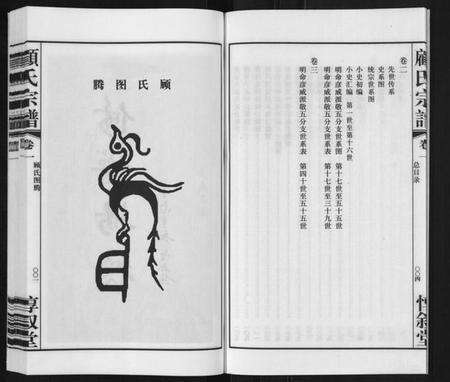 卷二
先世传系
史系图
统宗世系图
小史初编
小史汇编 第一世至第十六世
明命彦威派敬五分支世系图 十七世至五十五世
明命彦威派敬五分支世系表 第十七世至三十九世
卷三
明命彦威派敬五分支世系表 第四十世至五十五世
顧氏宗譜
卷一
总目录
〇〇四
惇叙堂
顾氏图腾
顧氏宗譜
卷一
顾氏图腾
〇〇二
惇叙堂